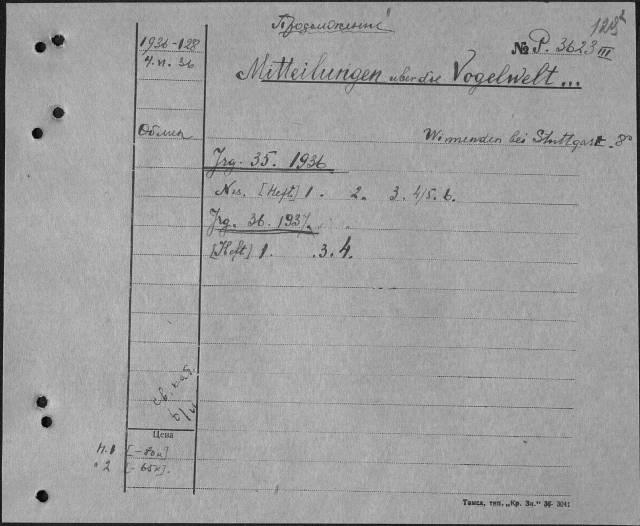 Продолжение
1936-128
4.VI.36
№ P. 3623 III
Mitteilungen über die Vogelwelt...
Обмен
Winnenden bei Stuttgart. 8°
Jrg. 35. 1936
Nos. [Heft] 1. 2. 3. 4/5. 6.
Jrg. 36. 1937.
[Heft] 1. .3. 4.
Цена
н.1 [-80к]
" 2 [-65к].
Тамса, тип. „Кр. Зн.“ 36- 3041